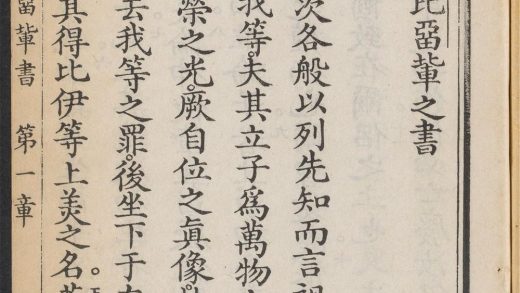 比畱輩之書
次各般以列先知而言
我等。夫其立子爲萬物
榮之光。厥自位之眞像
去我等之罪。後坐下于
其得比伊等上美之名。
畱輩書 第一章